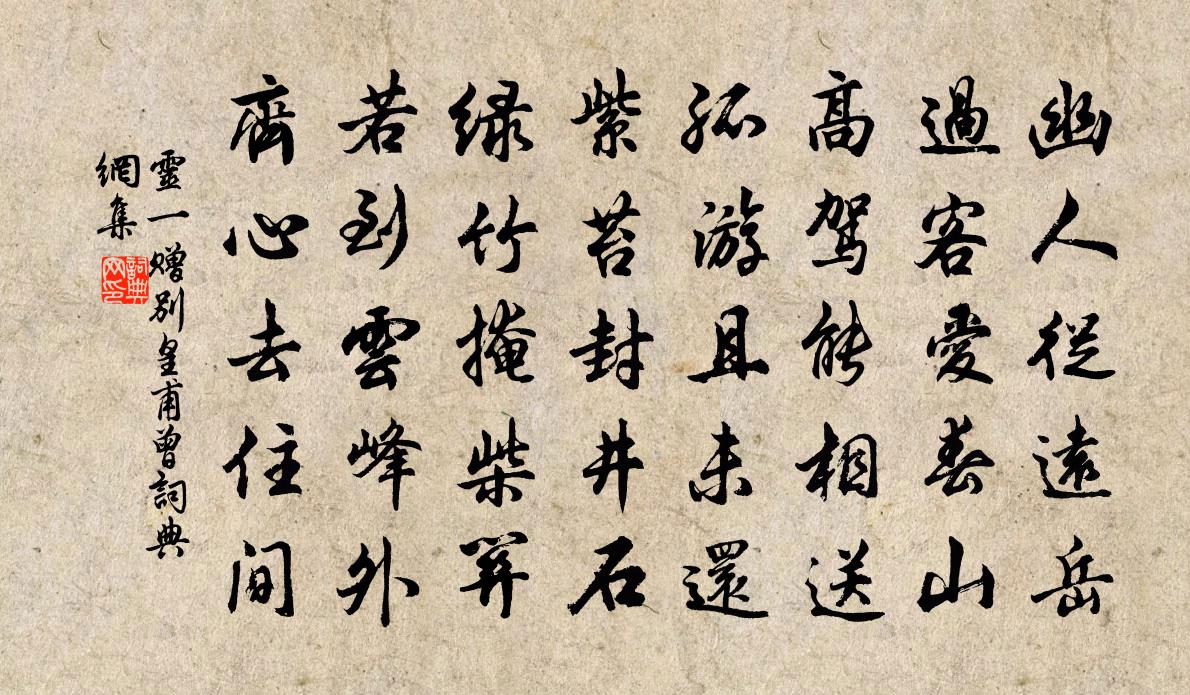 幽人從遠岳
過客愛春山
高駕能相送
孤游且未還
紫苔封井石
绿竹掩柴關
若到雲峰外
齊心去住間
靈一贈别皇甫曾詞典
網集
詞典
网印